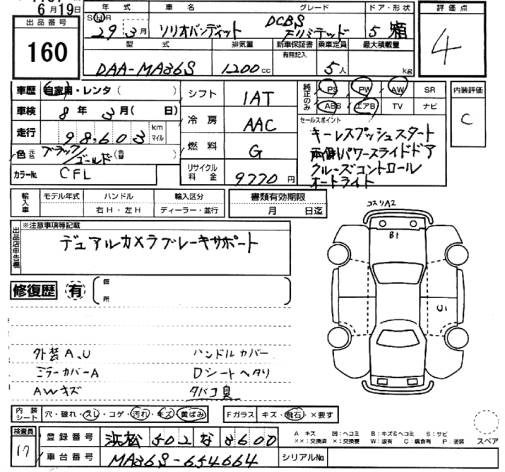 6月19日
出品番号
160
年式 車名 グレード ドア・形状
29年3月 ソリオバンディット DCBS 5 箱
型式 排気量 新車保証書 乗車定員 最大積載量
有問記入
DAA-MA36S 1200cc 5人 kg
評価点
4
車歴 自家用・レンタ( )
車検 8年3月( 日)
走行 98,603 km マイル
色 ブラック/ゴールド
カラーNo. CFL
シフト 1AT
冷房 AAC
燃料 G
リサイクル料金 9770円
純正のみ PS PW AW SR
ABS エアB TV ナビ
セールスポイント
キーレスプッシュスタート
両側パワースライドドア
クルーズコントロール
オートライト
内装評価
C
輸入車 モデル年式 ハンドル 輸入区分
年 右H・左H ディーラー・並行
書類有効期限
月 日迄
出品店申告欄 ※注意事項等記載
デュアルカメラブレーキサポート
修復歴 有 個所
コスリA2
B1
U1
外装A、U ハンドルカバー
ミラーカバーA Dシートヘタリ
AWキズ タバコ臭
内装シート 穴・破れ・スレ・コゲ・汚れ・キズ・黄ばみ
Fガラス キズ・飛石・×要す
検査員
17
登録番号 浜松 502 な 8600
車台番号 MA36S-654664
シリアルNo.
A:キズ U:ヘコミ B:キズ&ヘコミ S:サビ
××:交換済 ×:交換要 W:波有 C:腐食有 P:塗装
スペア